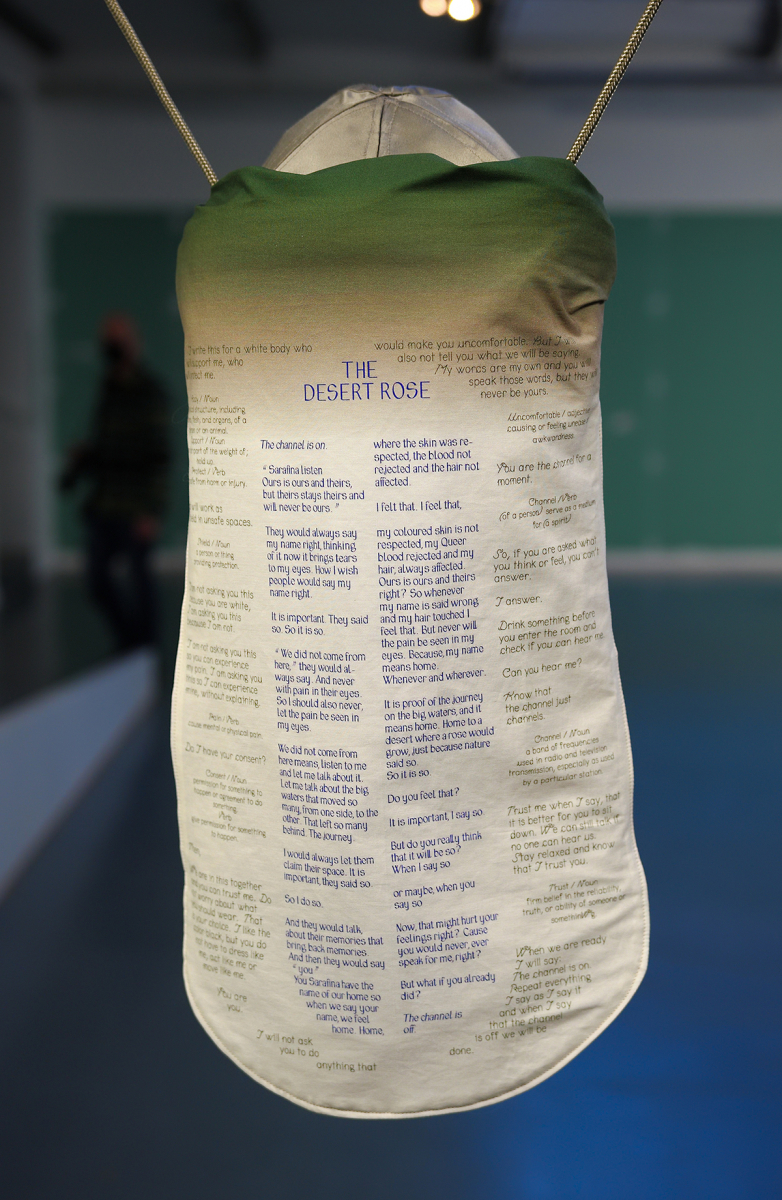 THE
DESERT ROSE
I write this for a white body who
support me, who
protect me.
Body / Noun
structure, including
and organs, of a
or an animal.
Support / Noun
part of the weight of;
hold up.
Protect / Verb
safe from harm or injury.
will work as
in unsafe spaces.
Shield / Noun
a person or thing
providing protection.
I'm not asking you this
because you are white,
I am asking you this
because I am not.
I'm not asking you this
so you can experience
my pain, I am asking you
this so I can experience
mine, without explaining.
Pain / Verb
cause mental or physical pain.
Do I have your consent?
Consent / Noun
permission for something to
happen or agreement to do
something.
Verb
give permission for something
to happen.
Then,
We are in this together
and you can trust me. Do
worry about what
should wear. That
your choice. I like the
color black, but you do
not have to dress like
me, act like me or
move like me.
You are
you.
I will not ask
you to do
anything that
The channel is on.
“ Sarafina listen
Ours is ours and theirs,
but theirs stays theirs and
will never be ours. ”
They would always say
my name right, thinking
of it now it brings tears
to my eyes. How I wish
people would say my
name right.
It is important. They said
so. So it is so.
“ We did not come from
here, ” they would al-
ways say. And never
with pain in their eyes.
So I should also never,
let the pain be seen in
my eyes.
We did not come from
here means, listen to me
and let me talk about it.
Let me talk about the big
waters that moved so
many, from one side, to the
other. That left so many
behind. The journey.
I would always let them
claim their space. It is
important, they said so.
So I do so.
And they would talk
about their memories that
bring back memories
And then they would say
“ you ”
You Sarafina have the
name of our home so
when we say your
name, we feel
home. Home,
where the skin was re-
spected, the blood not
rejected and the hair not
affected.
I felt that. I feel that,
my coloured skin is not
respected, my Queer
blood rejected and my
hair, always affected.
Ours is ours and theirs
right? So whenever
my name is said wrong
and my hair touched I
feel that. But never will
the pain be seen in my
eyes. Because, my name
means home.
Whenever and wherever.
It is proof of the journey
on the big waters, and it
means home. Home to a
desert where a rose would
grow, just because nature
said so.
So it is so.
Do you feel that?
It is important, I say so.
But do you really think
that it will be so?
When I say so
or maybe, when you
say so
Now, that might hurt your
feelings right? Cause
you would never, ever
speak for me, right?
But what if you already
did?
The channel is
off.
would make you uncomfortable. But I
also not tell you what we will be saying.
My words are my own and you will
speak those words, but they will
never be yours.
Uncomfortable / adjective
causing or feeling unease
awkwardness.
You are the channel for a
moment.
Channel / Verb
(of a person) serve as a medium
for (a spirit)
So, if you are asked what
you think or feel, you can't
answer.
I answer.
Drink something before
you enter the room and
check if you can hear me.
Can you hear me?
Know that
the channel just
channels.
Channel / Noun
a band of frequencies
used in radio and television
transmission, especially as used
by a particular station.
Trust me when I say, that
it is better for you to sit
down. We can still talk if
no one can hear us.
Stay relaxed and know
that I trust you.
Trust / Noun
firm belief in the reliability,
truth, or ability of someone or
something.
When we are ready
I will say:
The channel is on.
Repeat everything
I say as I say it
and when I say
that the channel
is off we will be
done.